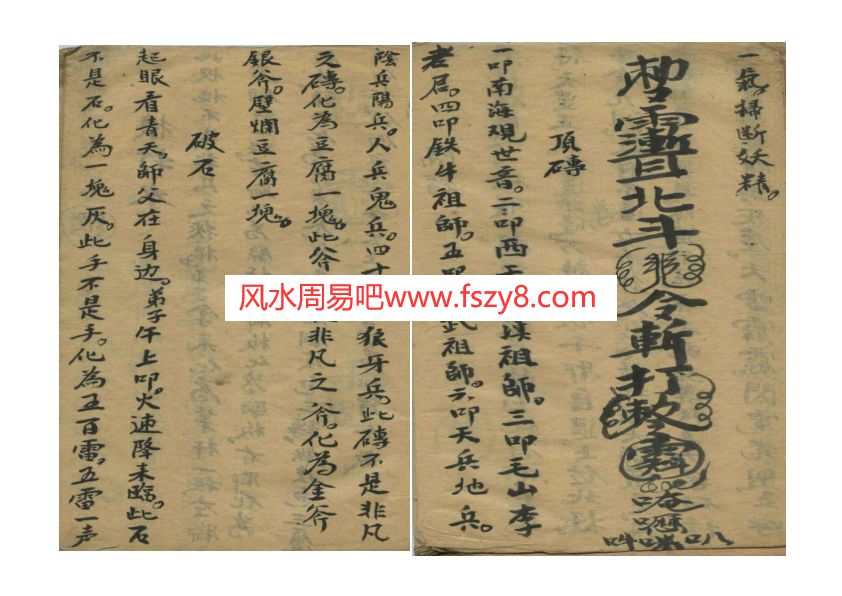 一氣。掃斷妖精。
北斗
令斬打
唵
吽 叭
頂磚
一叩南海观世音。二叩西天 祖師。三叩毛山李
老君。四叩鉄牛祖師。五叩 武祖師。六叩天兵地兵。
陰兵陽兵。人兵鬼兵。四十 狼牙兵。此磚不是非凡
之磚。化為豆腐一塊。此斧 非凡之斧。化為金斧
銀斧。壁爛豆腐一塊。
破石
起眼看青天。師父在身边。弟子午上叩。火速降来臨。此石
不是石。化為一塊灰。此手不是手。化為五百雷。五雷一声
风水周易吧www.fszy8.com